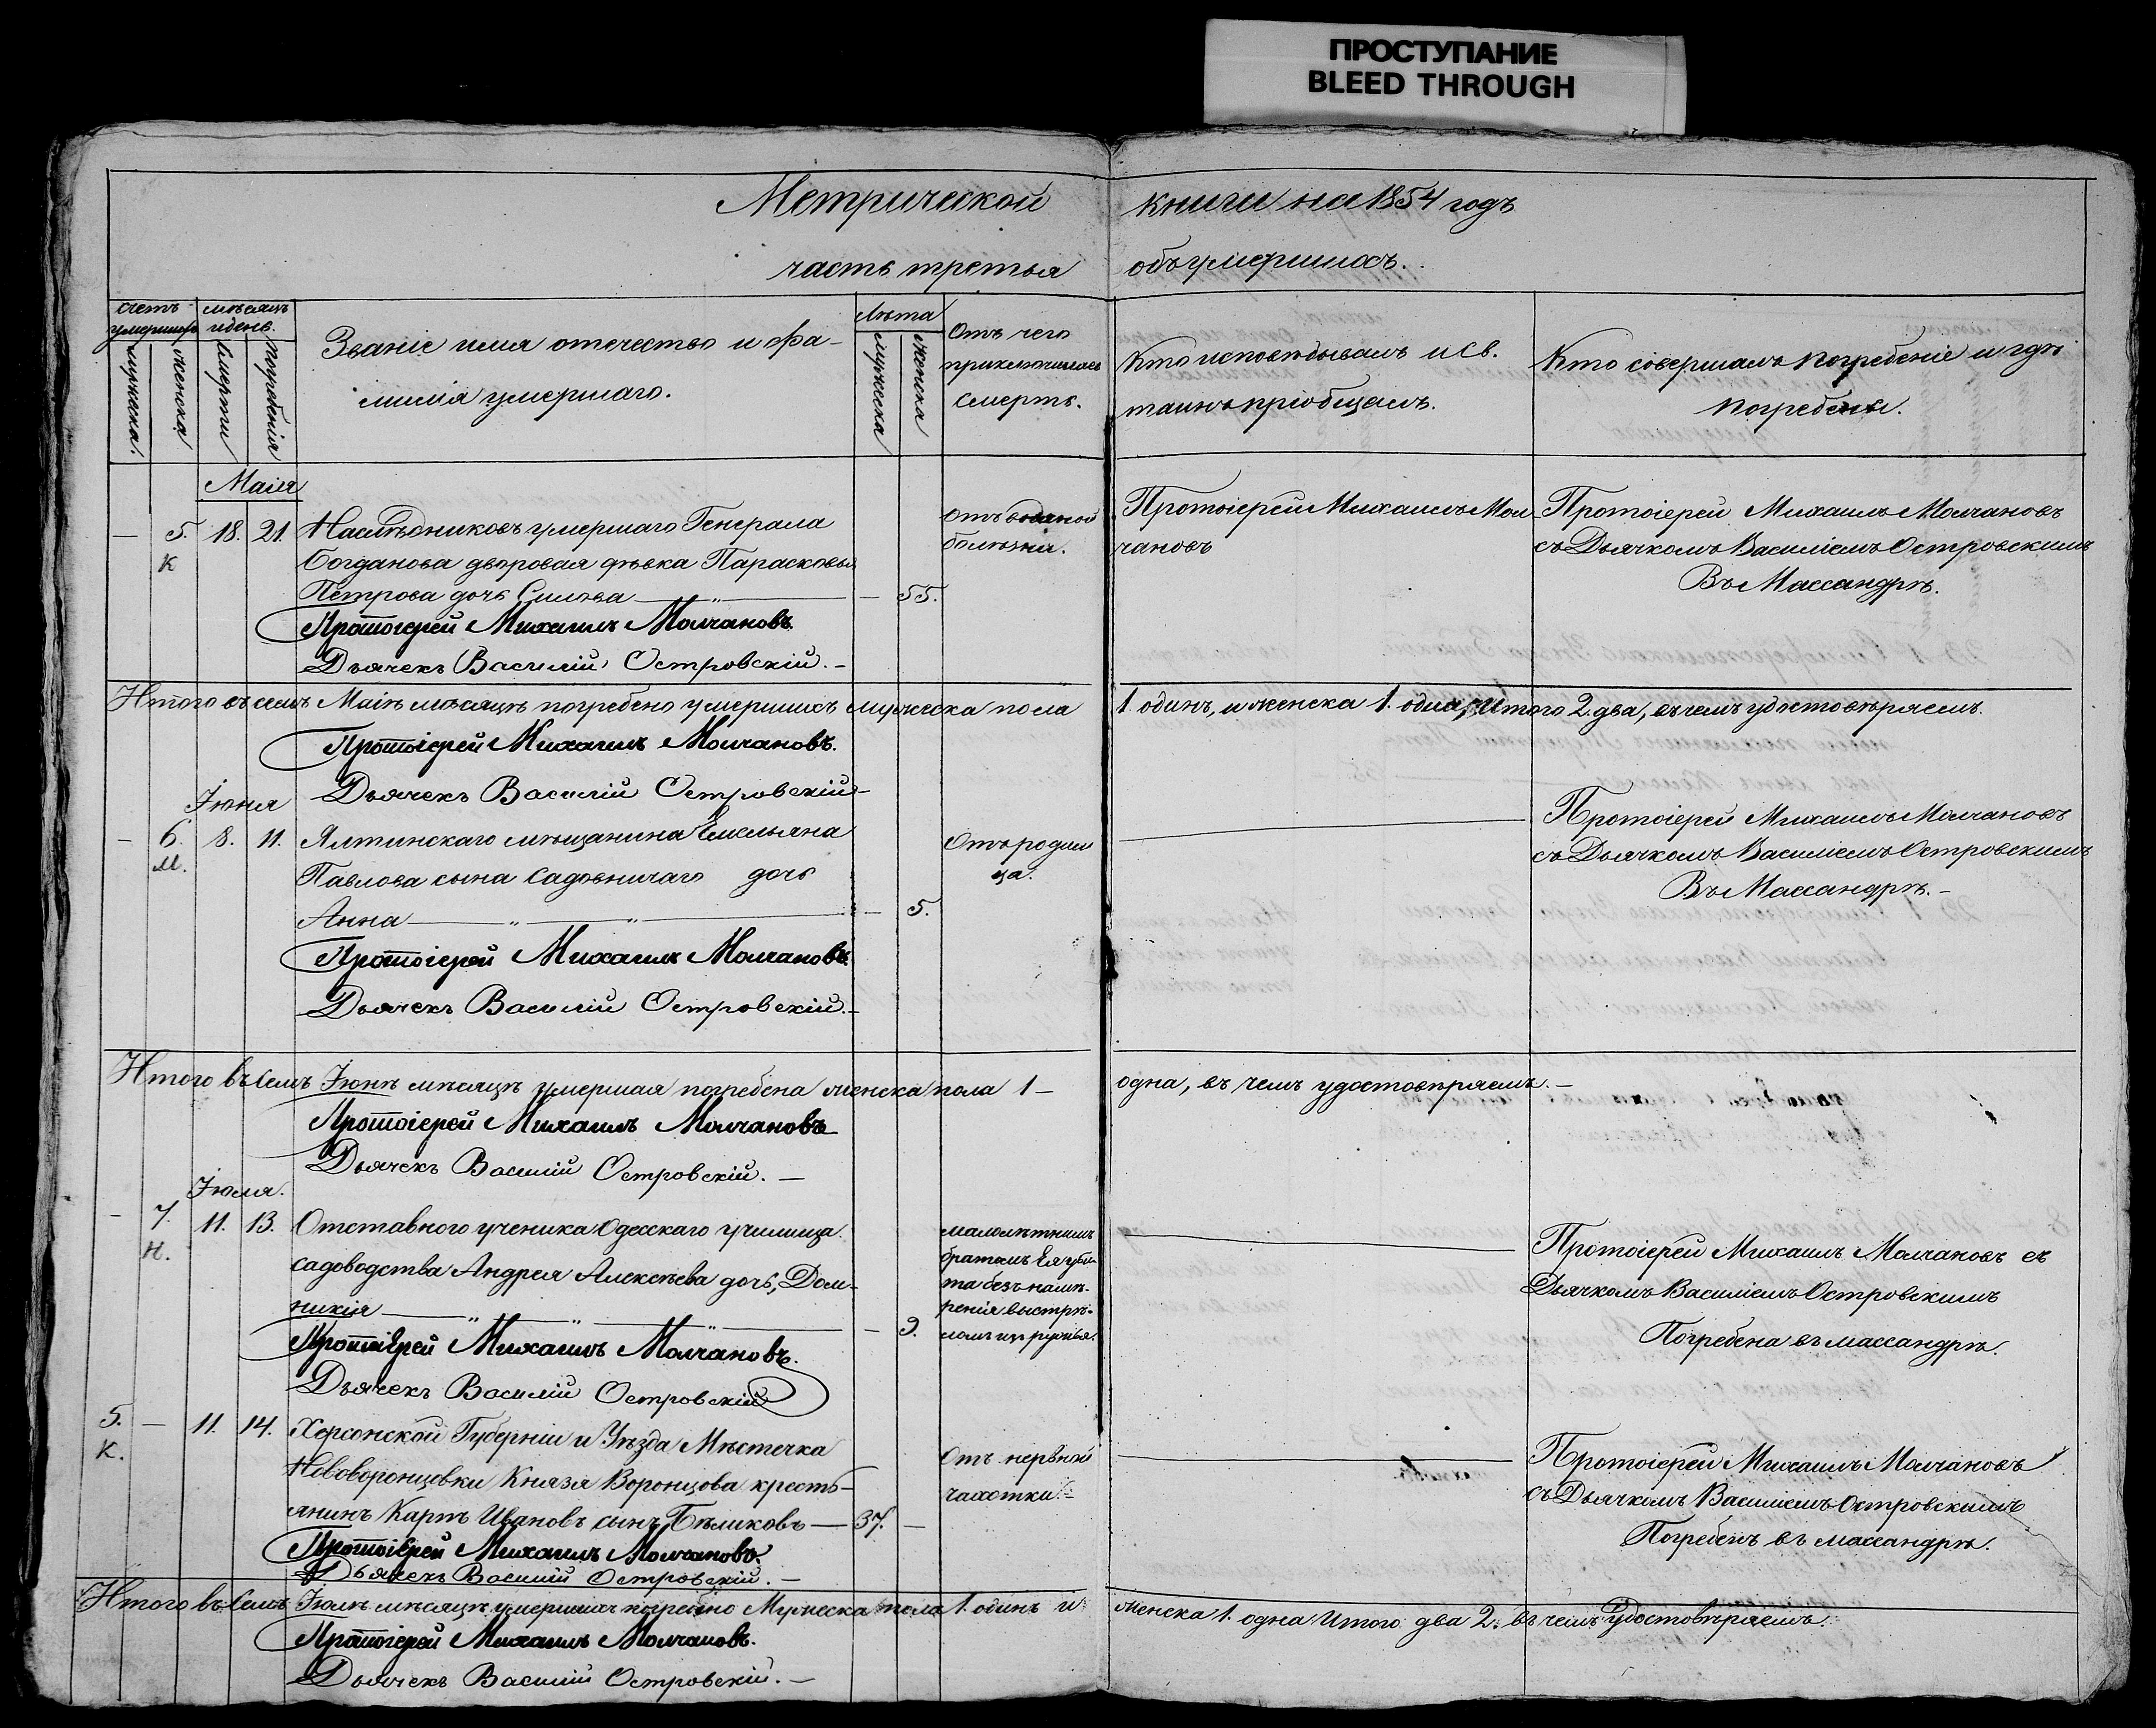 ПРОСТУПАНИЕ
BLEED THROUGH
Метрической книги на 1854 годъ
часть третья объ умершихъ.
счетъ умершихъ
мужеска.
женска
мѣсяцъ и день.
смерти
погребенія
Званіе имя отечество и фа-
милія умершаго.
Лѣта
мужеска
женска
Отъ чего
приключилась
смерть.
Кто исповѣдывалъ и Св.
таинъ пріобщалъ.
Кто совершалъ погребеніе и гдѣ
погребены.
Маія
— 5. 18. 21. Наслѣдниковъ умершаго Генерала
К
Богданова дворовая дѣвка Парасковья
Петрова дочь Силова — 55.
Отъ водяной
болѣзни.
Протоіерей Михаилъ Мол-
чановъ
Протоіерей Михаилъ Молчановъ
съ Дьячкомъ Василіемъ Островскимъ
Въ Массандрѣ.
Протоіерей Михаилъ Молчановъ.
Дьячекъ Василій Островскій.—
Итого въ семъ Маіѣ мѣсяцѣ погребено умершихъ мужеска пола 1. одинъ, и женска 1. одна, Итого 2. два, въ чемъ удостовѣряемъ.
Протоіерей Михаилъ Молчановъ.
Дьячекъ Василій Островскій—
Іюня
— 6. 8. 11. Ялтинскаго мѣщанина Емельяна
М.
Павлова сына Садовничаго дочь
Анна — 5.
Отъ родим
ца.
Протоіерей Михаилъ Молчановъ
съ Дьячкомъ Василіемъ Островскимъ
Въ Массандрѣ.—
Протоіерей Михаилъ Молчановъ.
Дьячекъ Василій Островскій.—
Итого въ семъ Іюнѣ мѣсяцѣ умершая погребена женска пола 1— одна, въ чемъ удостовѣряемъ.—
Протоіерей Михаилъ Молчановъ
Дьячекъ Василій Островскій.—
Іюля.
— 7. 11. 13. Отставного ученика Одесскаго училища
Н.
садоводства Андрея Алексѣева дочь, Дом-
никія — 9.
малолѣтнимъ
братомъ Ея уби-
та безъ намѣ-
ренія выстрѣ-
ломъ изъ ружья.
Протоіерей Михаилъ Молчановъ съ
Дьячкомъ Василіемъ Островскимъ
Погребена въ массандрѣ.
Протоіерей Михаилъ Молчановъ.
Дьячекъ Василій Островскій
5. — 11. 14. Херсонской Губерніи и Уѣзда Мѣстечка
К.
Нововоронцовки Князя Воронцова кресть-
янинъ Карпъ Ивановъ сынъ Бѣликовъ — 37. —
Отъ нервной
чахотки.—
Протоіерей Михаилъ Молчановъ
съ Дьячкомъ Василіемъ Островскимъ
Погребенъ въ массандрѣ.
Протоіерей Михаилъ Молчановъ.
Дьячекъ Василій Островскій.—
Итого въ семъ Іюлѣ мѣсяцѣ умершихъ погребено Мужеска пола 1. одинъ и женска 1. одна Итого два 2. въ чемъ Удостовѣряемъ.
Протоіерей Михаилъ Молчановъ.
Дьячекъ Василій Островскій.—